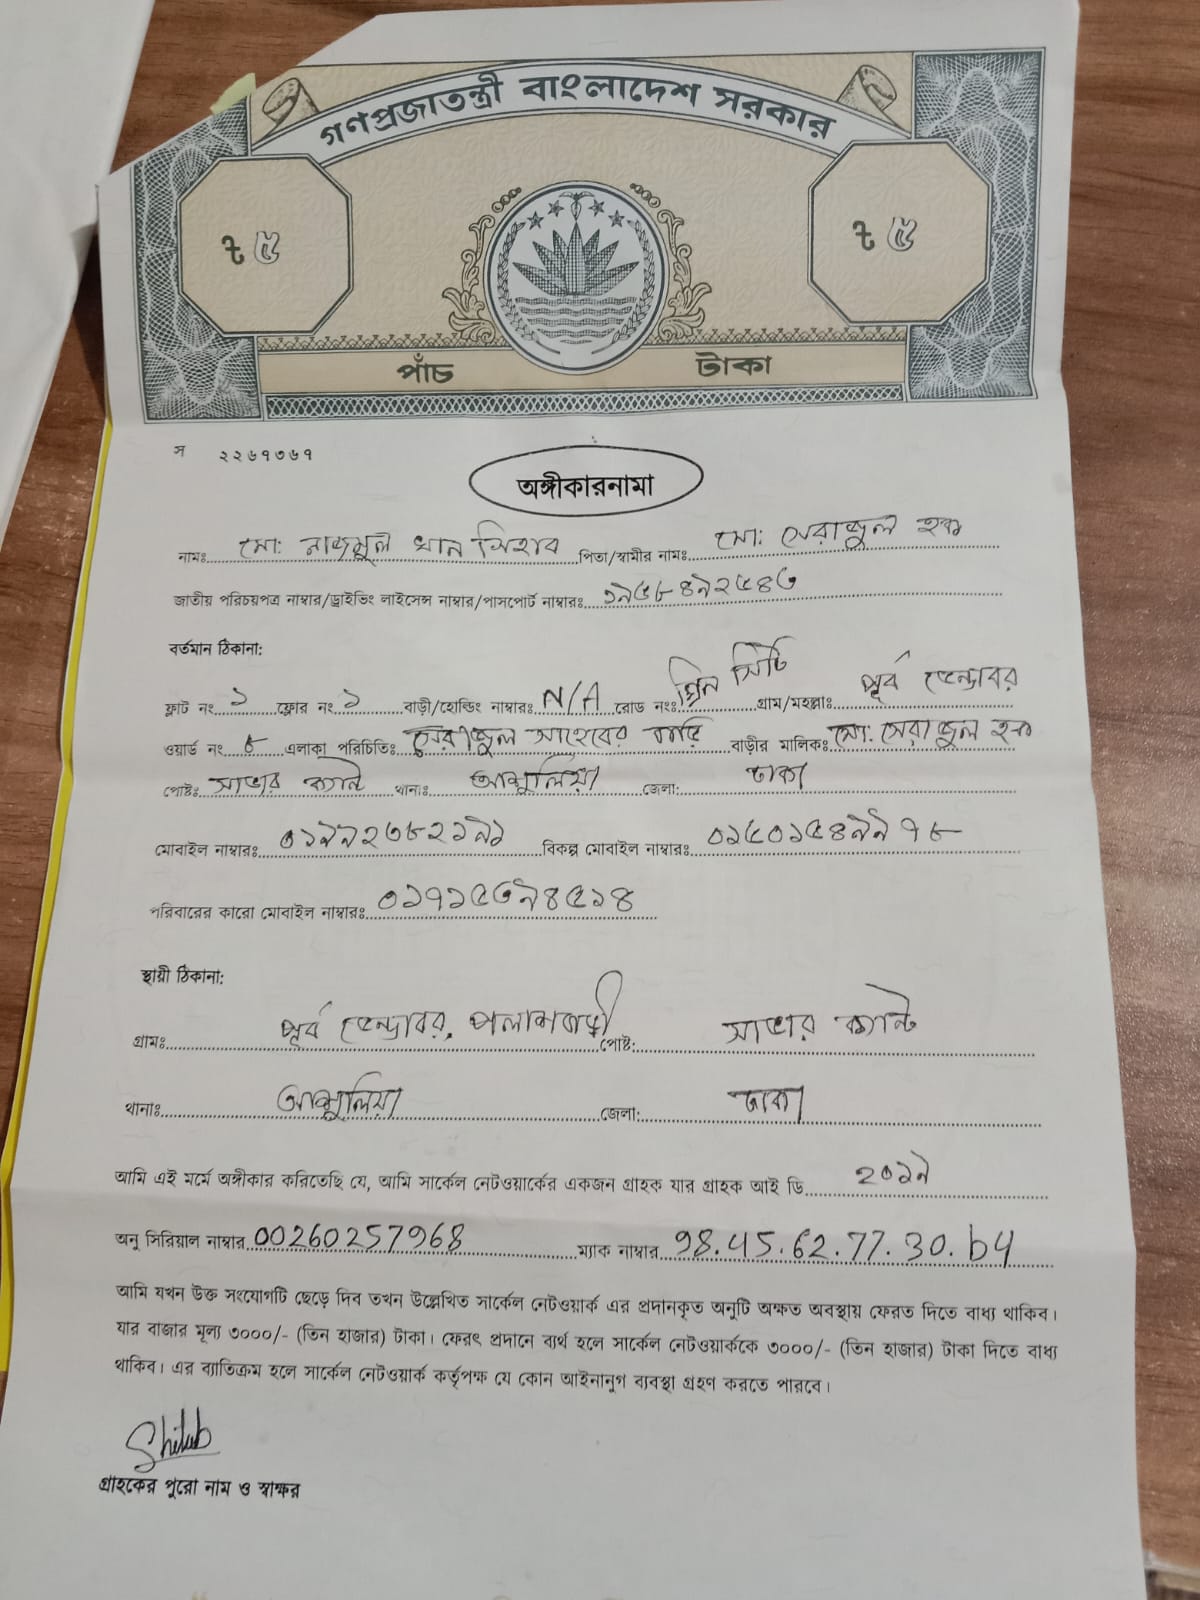 গণপ্রজাতন্ত্রী বাংলাদেশ সরকার
৳ ৫ ৳ ৫
পাঁচ টাকা
স ২২৬৭৩৬৭
অঙ্গীকারনামা
নামঃ মো: নাজমুল খান সিহাব পিতা/স্বামীর নামঃ মো: সেরাজুল হক
জাতীয় পরিচয়পত্র নাম্বার/ড্রাইভিং লাইসেন্স নাম্বার/পাসপোর্ট নাম্বারঃ ১৯৫৮৪৯২৫৪৩
বর্তমান ঠিকানা:
ফ্লাট নং ১ ফ্লোর নং ১ বাড়ী/হোল্ডিং নাম্বারঃ N/A রোড নংঃ গ্রিন সিটি গ্রাম/মহল্লাঃ পূর্ব ডেন্ডাবর
ওয়ার্ড নং ৮ এলাকা পরিচিতিঃ সেরাজুল সাহেবের বাড়ি বাড়ীর মালিকঃ মো: সেরাজুল হক
পোষ্টঃ সাভার ক্যান্ট থানাঃ আশুলিয়া জেলা: ঢাকা
মোবাইল নাম্বারঃ ০১৯৯২৩৮২১৯১ বিকল্প মোবাইল নাম্বারঃ ০১৫০১৫৪৯৯৭৮
পরিবারের কারো মোবাইল নাম্বারঃ ০১৭১৫৩৯৪৫১৪
স্থায়ী ঠিকানা:
গ্রামঃ পূর্ব ডেন্ডাবর, পলাশবাড়ী পোষ্ট: সাভার ক্যান্ট
থানাঃ আশুলিয়া জেলা: ঢাকা
আমি এই মর্মে অঙ্গীকার করিতেছি যে, আমি সার্কেল নেটওয়ার্কের একজন গ্রাহক যার গ্রাহক আই ডি ২০১৯
অনু সিরিয়াল নাম্বার 00260257968 ম্যাক নাম্বার 98.45.62.77.30.b4
আমি যখন উক্ত সংযোগটি ছেড়ে দিব তখন উল্লেখিত সার্কেল নেটওয়ার্ক এর প্রদানকৃত অনুটি অক্ষত অবস্থায় ফেরত দিতে বাধ্য থাকিব।
যার বাজার মূল্য ৩০০০/- (তিন হাজার) টাকা। ফেরৎ প্রদানে ব্যর্থ হলে সার্কেল নেটওয়ার্ককে ৩০০০/- (তিন হাজার) টাকা দিতে বাধ্য
থাকিব। এর ব্যাতিক্রম হলে সার্কেল নেটওয়ার্ক কর্তৃপক্ষ যে কোন আইনানুগ ব্যবস্থা গ্রহণ করতে পারবে।
Shihab
গ্রাহকের পুরো নাম ও স্বাক্ষর